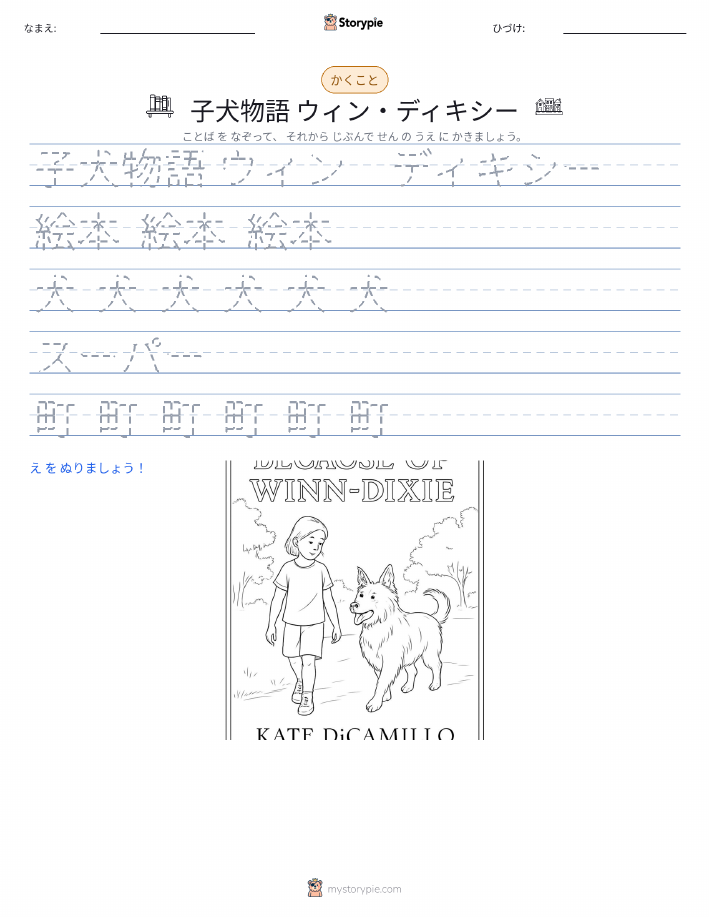 なまえ:
Storypie
ひづけ:
かくこと
子犬物語 ウィン・ディキシー
ことば を なぞって、 それから じぶんで せん の うえ に かきましょう。
子犬物語 ウィン ディキシー
絵本 絵本 絵本
犬 犬 犬 犬 犬 犬
スーパー
町 町 町 町 町 町
え を ぬりましょう！
BECAUSE OF
WINN-DIXIE
KATE DiCAMILLO
mystorypie.com